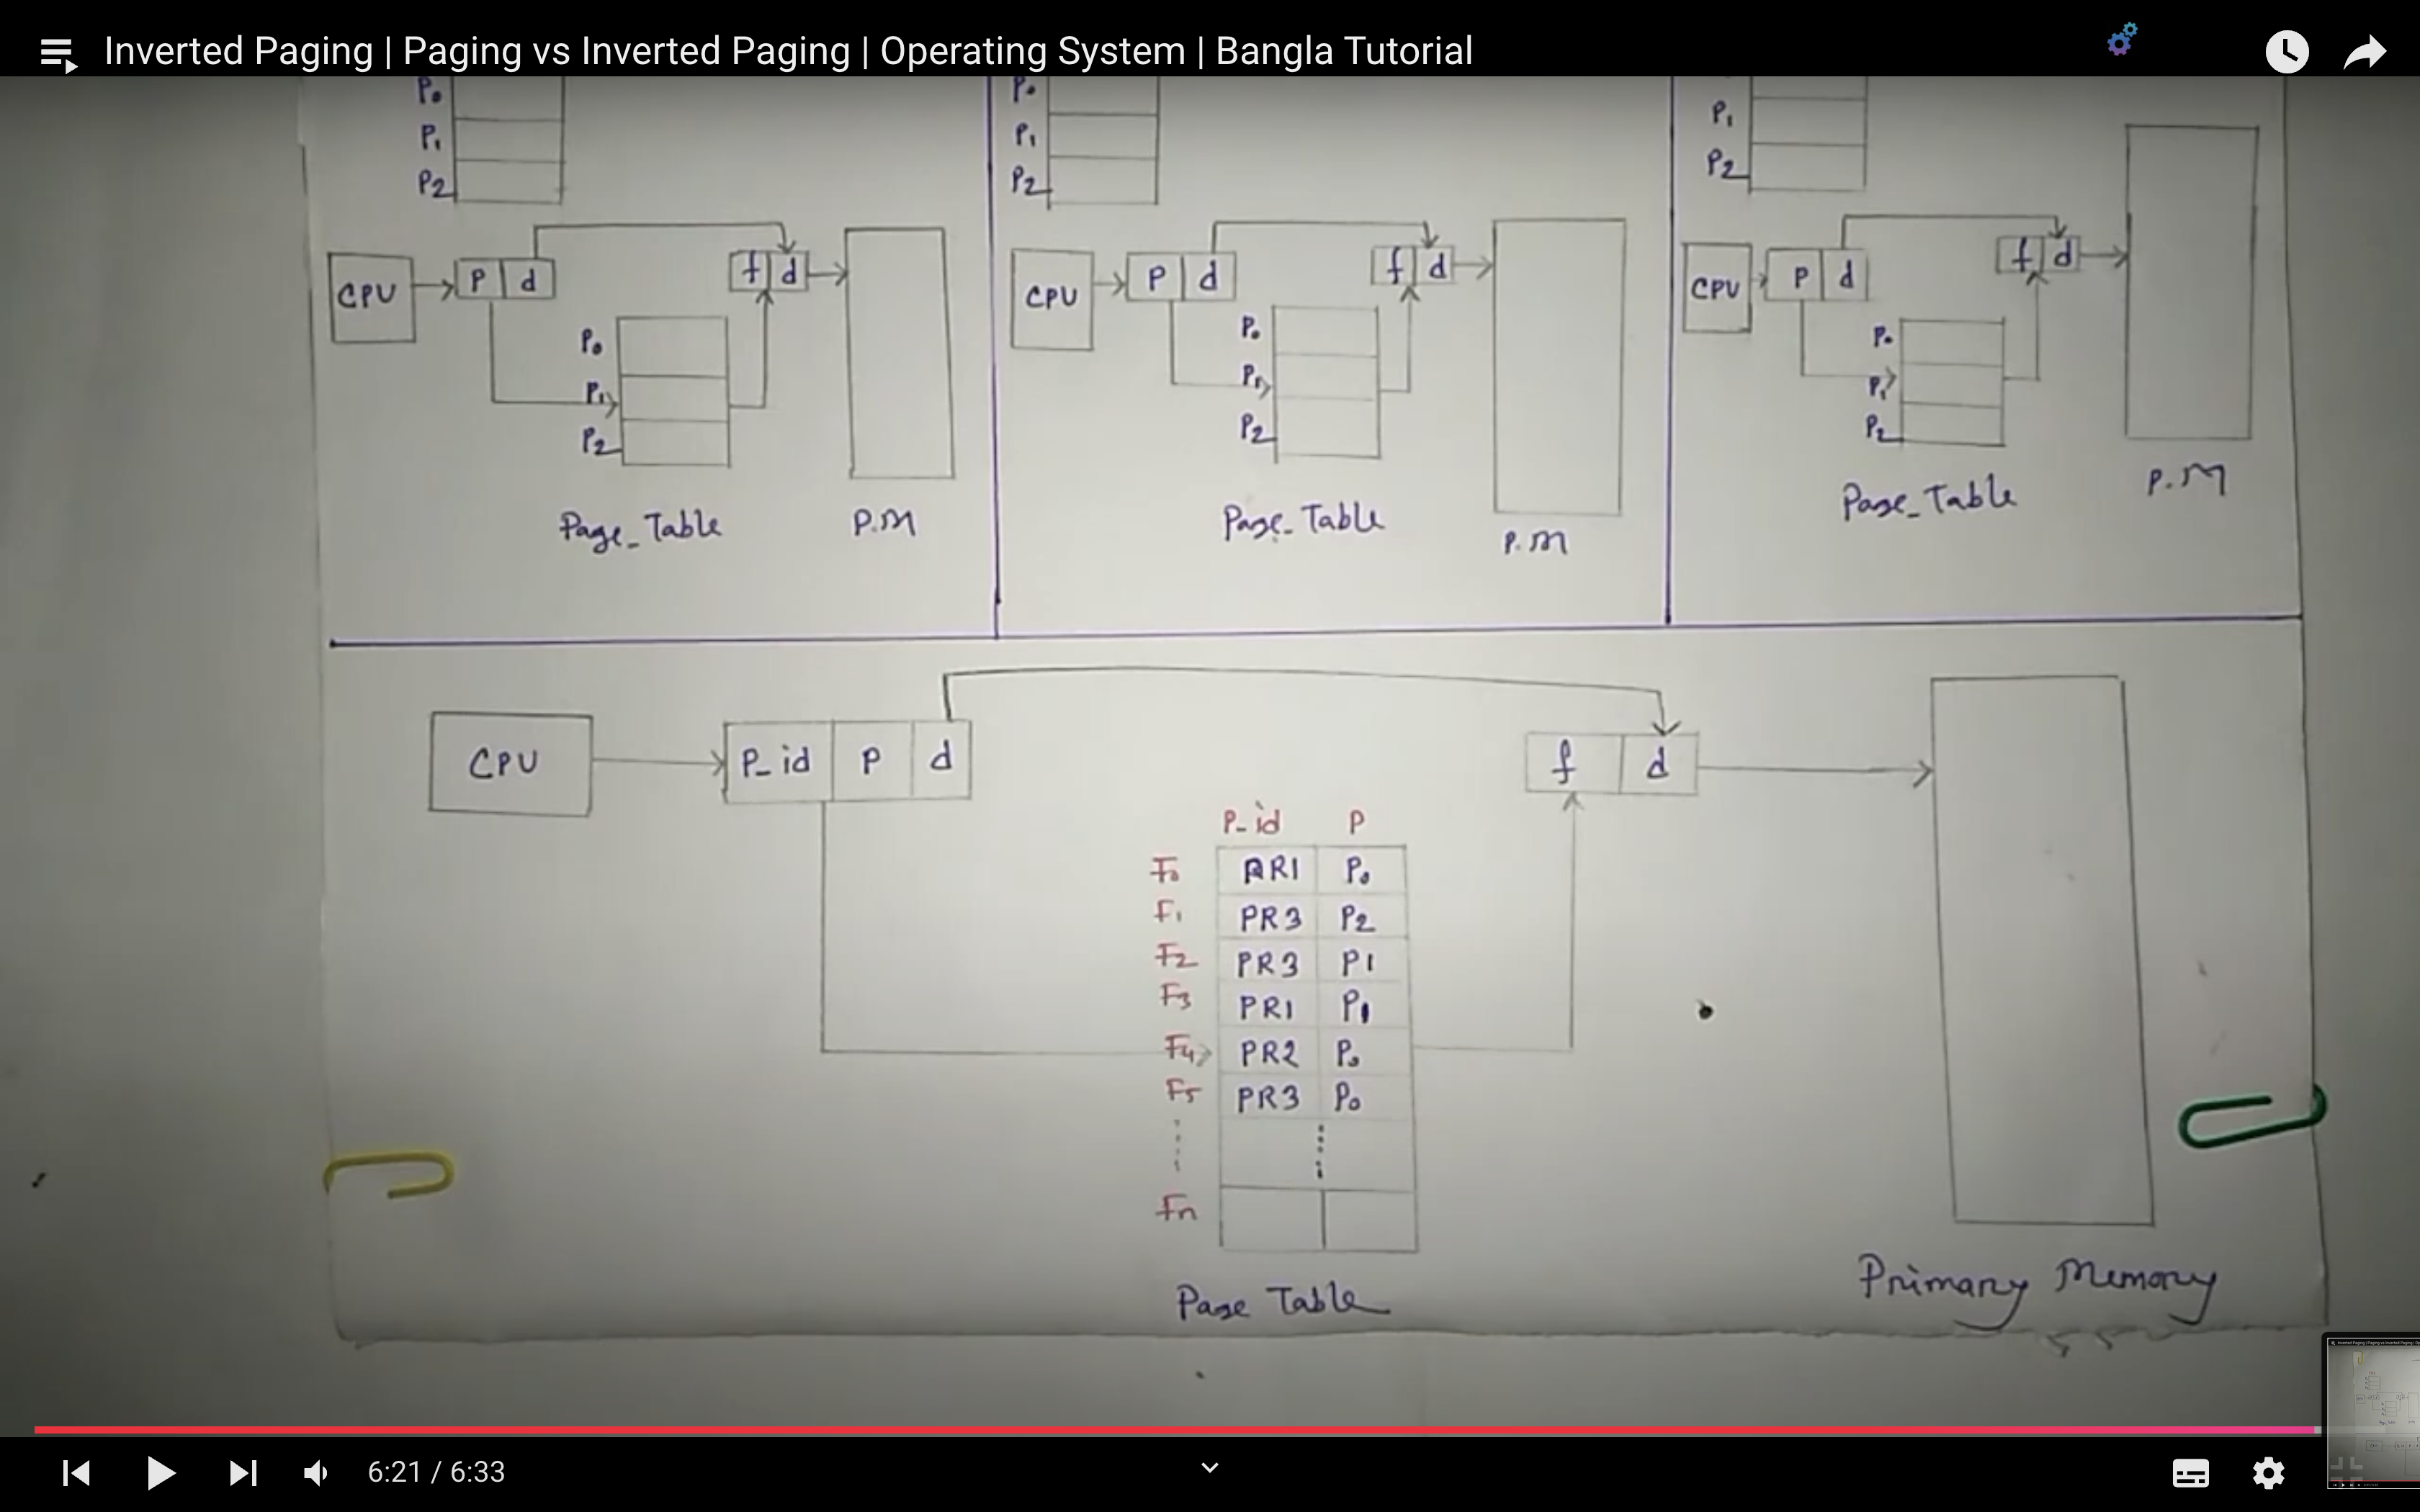 Inverted Paging | Paging vs Inverted Paging | Operating System | Bangla Tutorial
P0
P1
P2
CPU
P d
f d
P0
P1
P2
Page_Table
P.M
P0
P1
P2
CPU
P d
f d
P0
P1
P2
Page_Table
P.M
P1
P2
CPU
P d
f d
P0
P1
P2
Page_Table
P.M
CPU
P_id P d
f d
P_id P
F0 PR1 P0
F1 PR3 P2
F2 PR3 P1
F3 PR1 P1
F4 PR2 P0
F5 PR3 P0
Fn
Page Table
Primary Memory
6:21 / 6:33